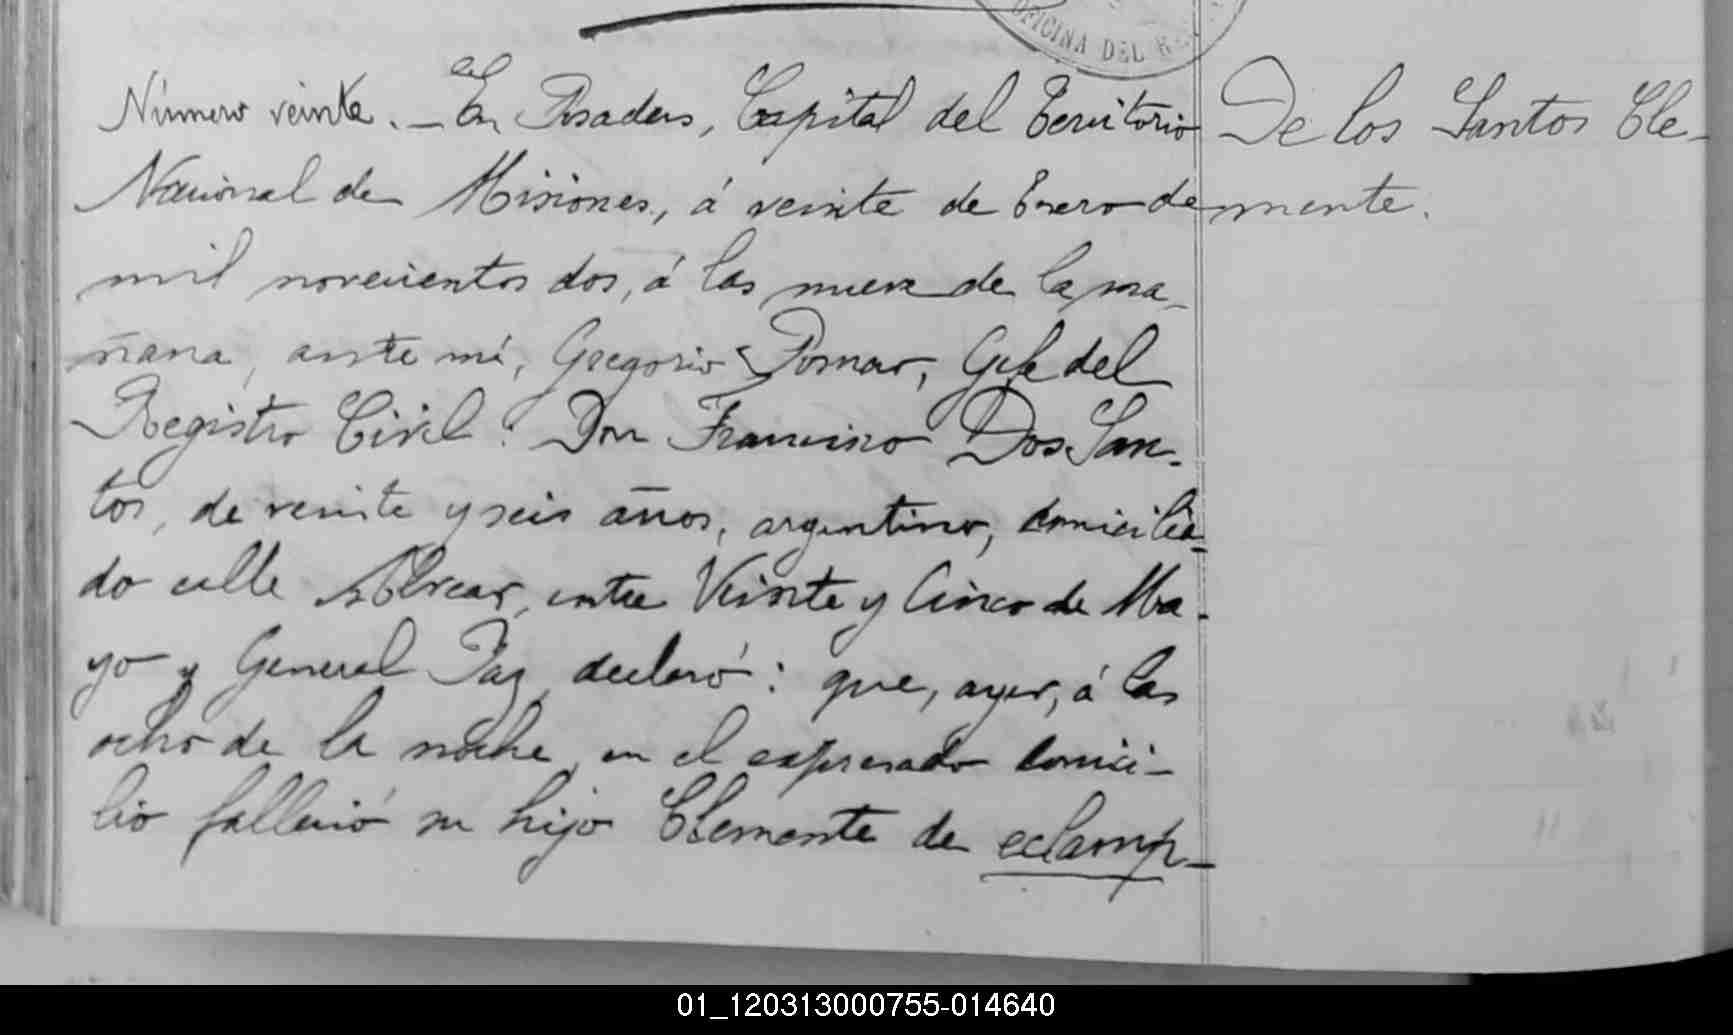 OFICINA DEL
Número veinte. — En Posadas, Capital del Territorio
Nacional de Misiones, á veinte de Enero de
mil novecientos dos, á las nueve de la ma-
ñana, ante mí, Gregorio Pomar, Gefe del
Registro Civil: Don Francisco Dos San-
tos, de veinte y seis años, argentino, domicilia-
do calle entre Veinte y Cinco de Ma-
yo y General Paz, declaró: que, ayer, á las
ocho de la noche, en el expresado domici-
lio falleció su hijo Clemente de eclamp-
De los Santos Cle-
mente.
01_120313000755-014640